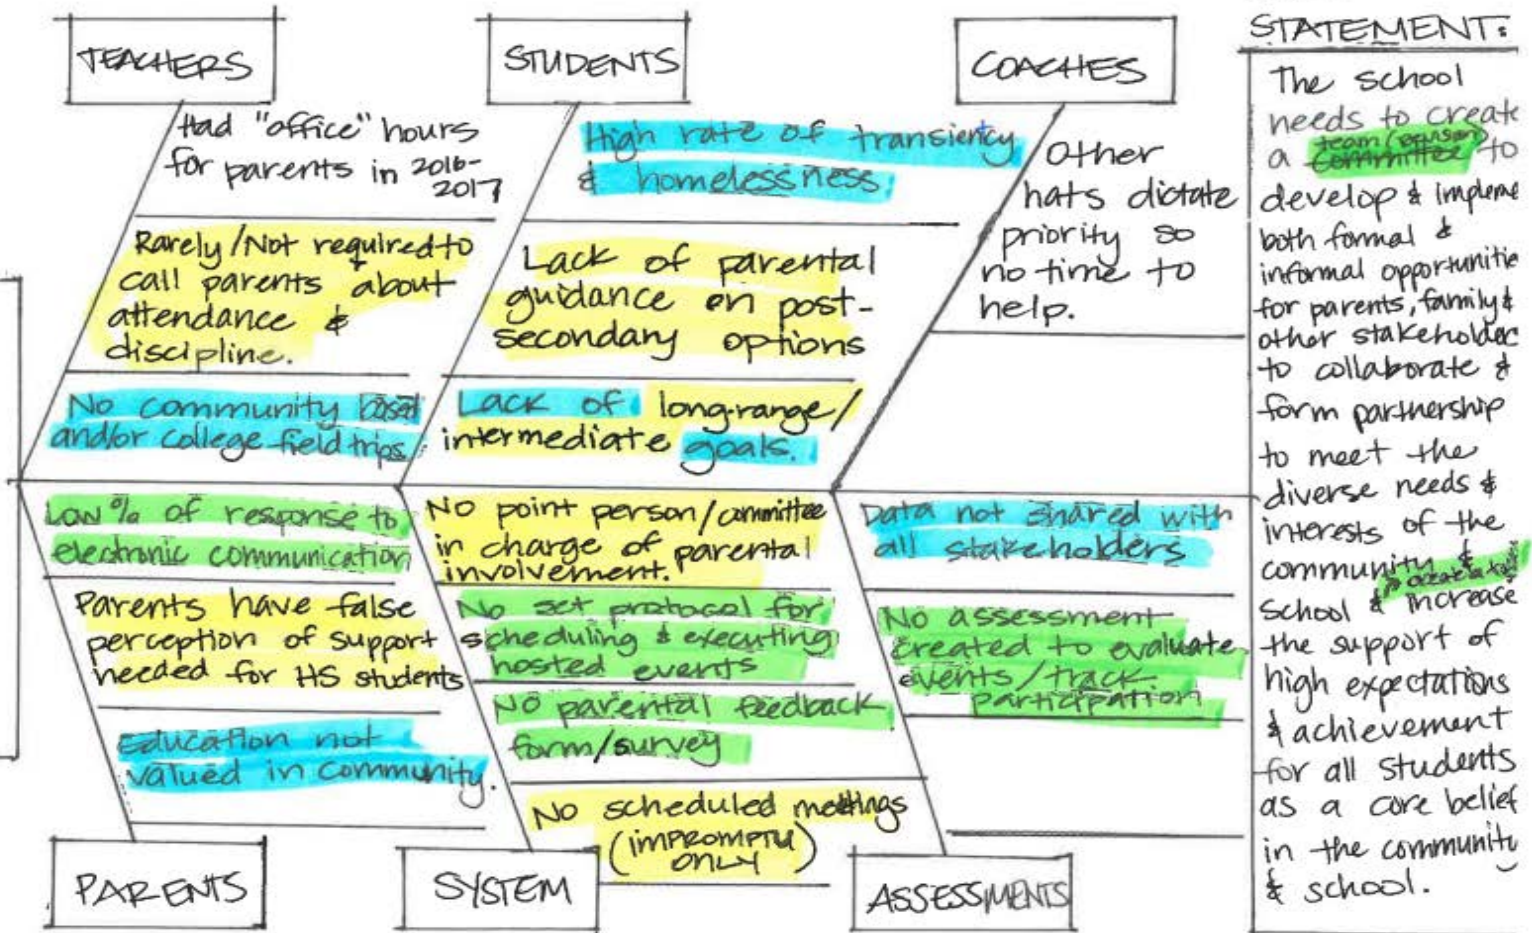 TEACHERS
Had "office" hours
for parents in 2016-
2017
Rarely/Not required to
call parents about
attendance &
discipline.
No community based
and/or college field trips
STUDENTS
High rate of transiency
& homelessness
Lack of parental
guidance on post-
secondary options
Lack of long-range/
intermediate goals.
COACHES
Other
hats dictate
priority so
no time to
help.
Low % of response to
electronic communication
Parents have false
perception of support
needed for HS students
Education not
valued in community.
PARENTS
No point person/committee
in charge of parental
involvement.
No set protocol for
scheduling & executing
hosted events
No parental feedback
form/survey
No scheduled meetings
(IMPROMPTU
ONLY)
SYSTEM
Data not shared with
all stakeholders
No assessment
created to evaluate
events/track
participation
ASSESSMENTS
STATEMENT:
The school
needs to create
team/
a committee to
develop & impleme
both formal &
informal opportunitie
for parents, family &
other stakeholder
to collaborate &
form partnership
to meet the
diverse needs &
interests of the
community &
school & increase
the support of
high expectations
& achievement
for all students
as a core belief
in the community
& school.